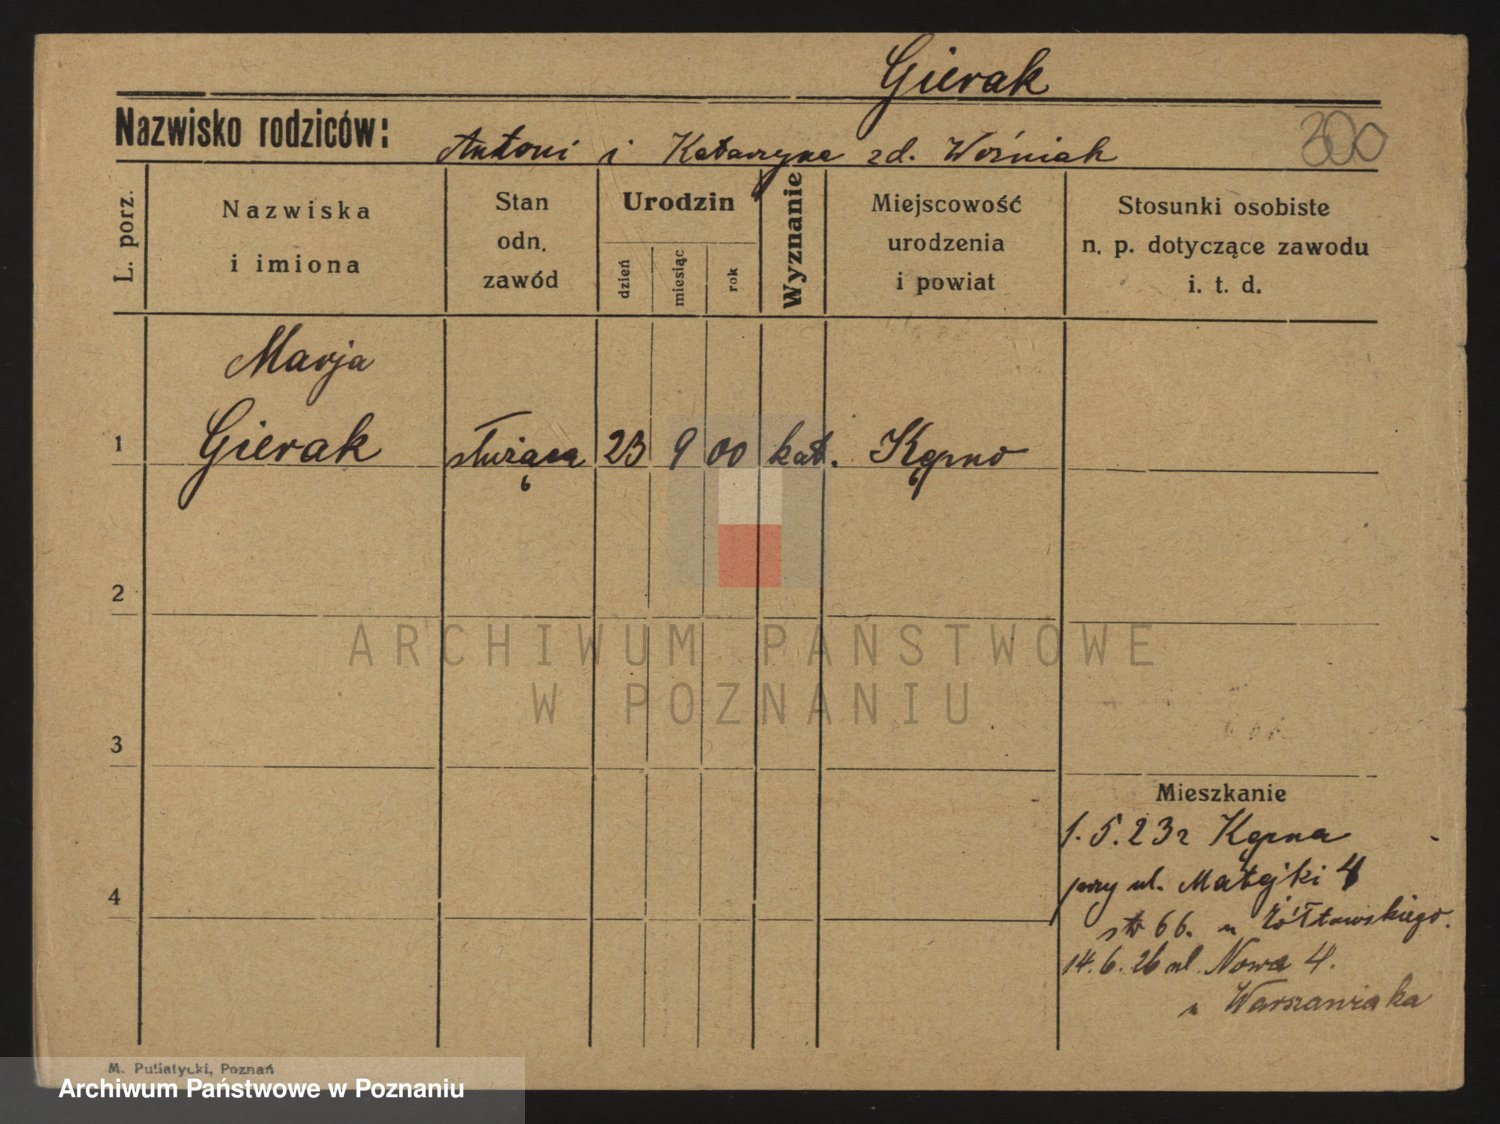 Gierak
Nazwisko rodziców:
Antoni i Katarzyna zd. Woźniak
300
L. porz.
Nazwiska
i imiona
Stan
odn.
zawód
Urodzin
dzień
miesiąc
rok
Wyznanie
Miejscowość
urodzenia
i powiat
Stosunki osobiste
n. p. dotyczące zawodu
i. t. d.
Marja
1 Gierak służąca 23 9 00 kat. Kępno
2
ARCHIWUM PAŃSTWOWE
W POZNANIU
3
Mieszkanie
1.5.23 z Kępna
4
przy ul. Matejki 4
str 66. u Żółtowskiego.
14.6.26 ul. Nowa 4.
u Warszawiaka
M. Putiatycki, Poznań
Archiwum Państwowe w Poznaniu